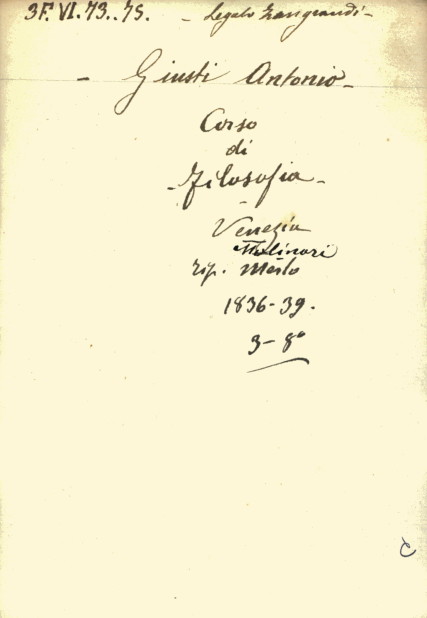 3F. VI. 73..75. - Legato Zangrandi -
- Giusti Antonio -
Corso
di
- Filosofia -
-
Venezia
Molinari
tip. Merlo
1836-39.
3-8°